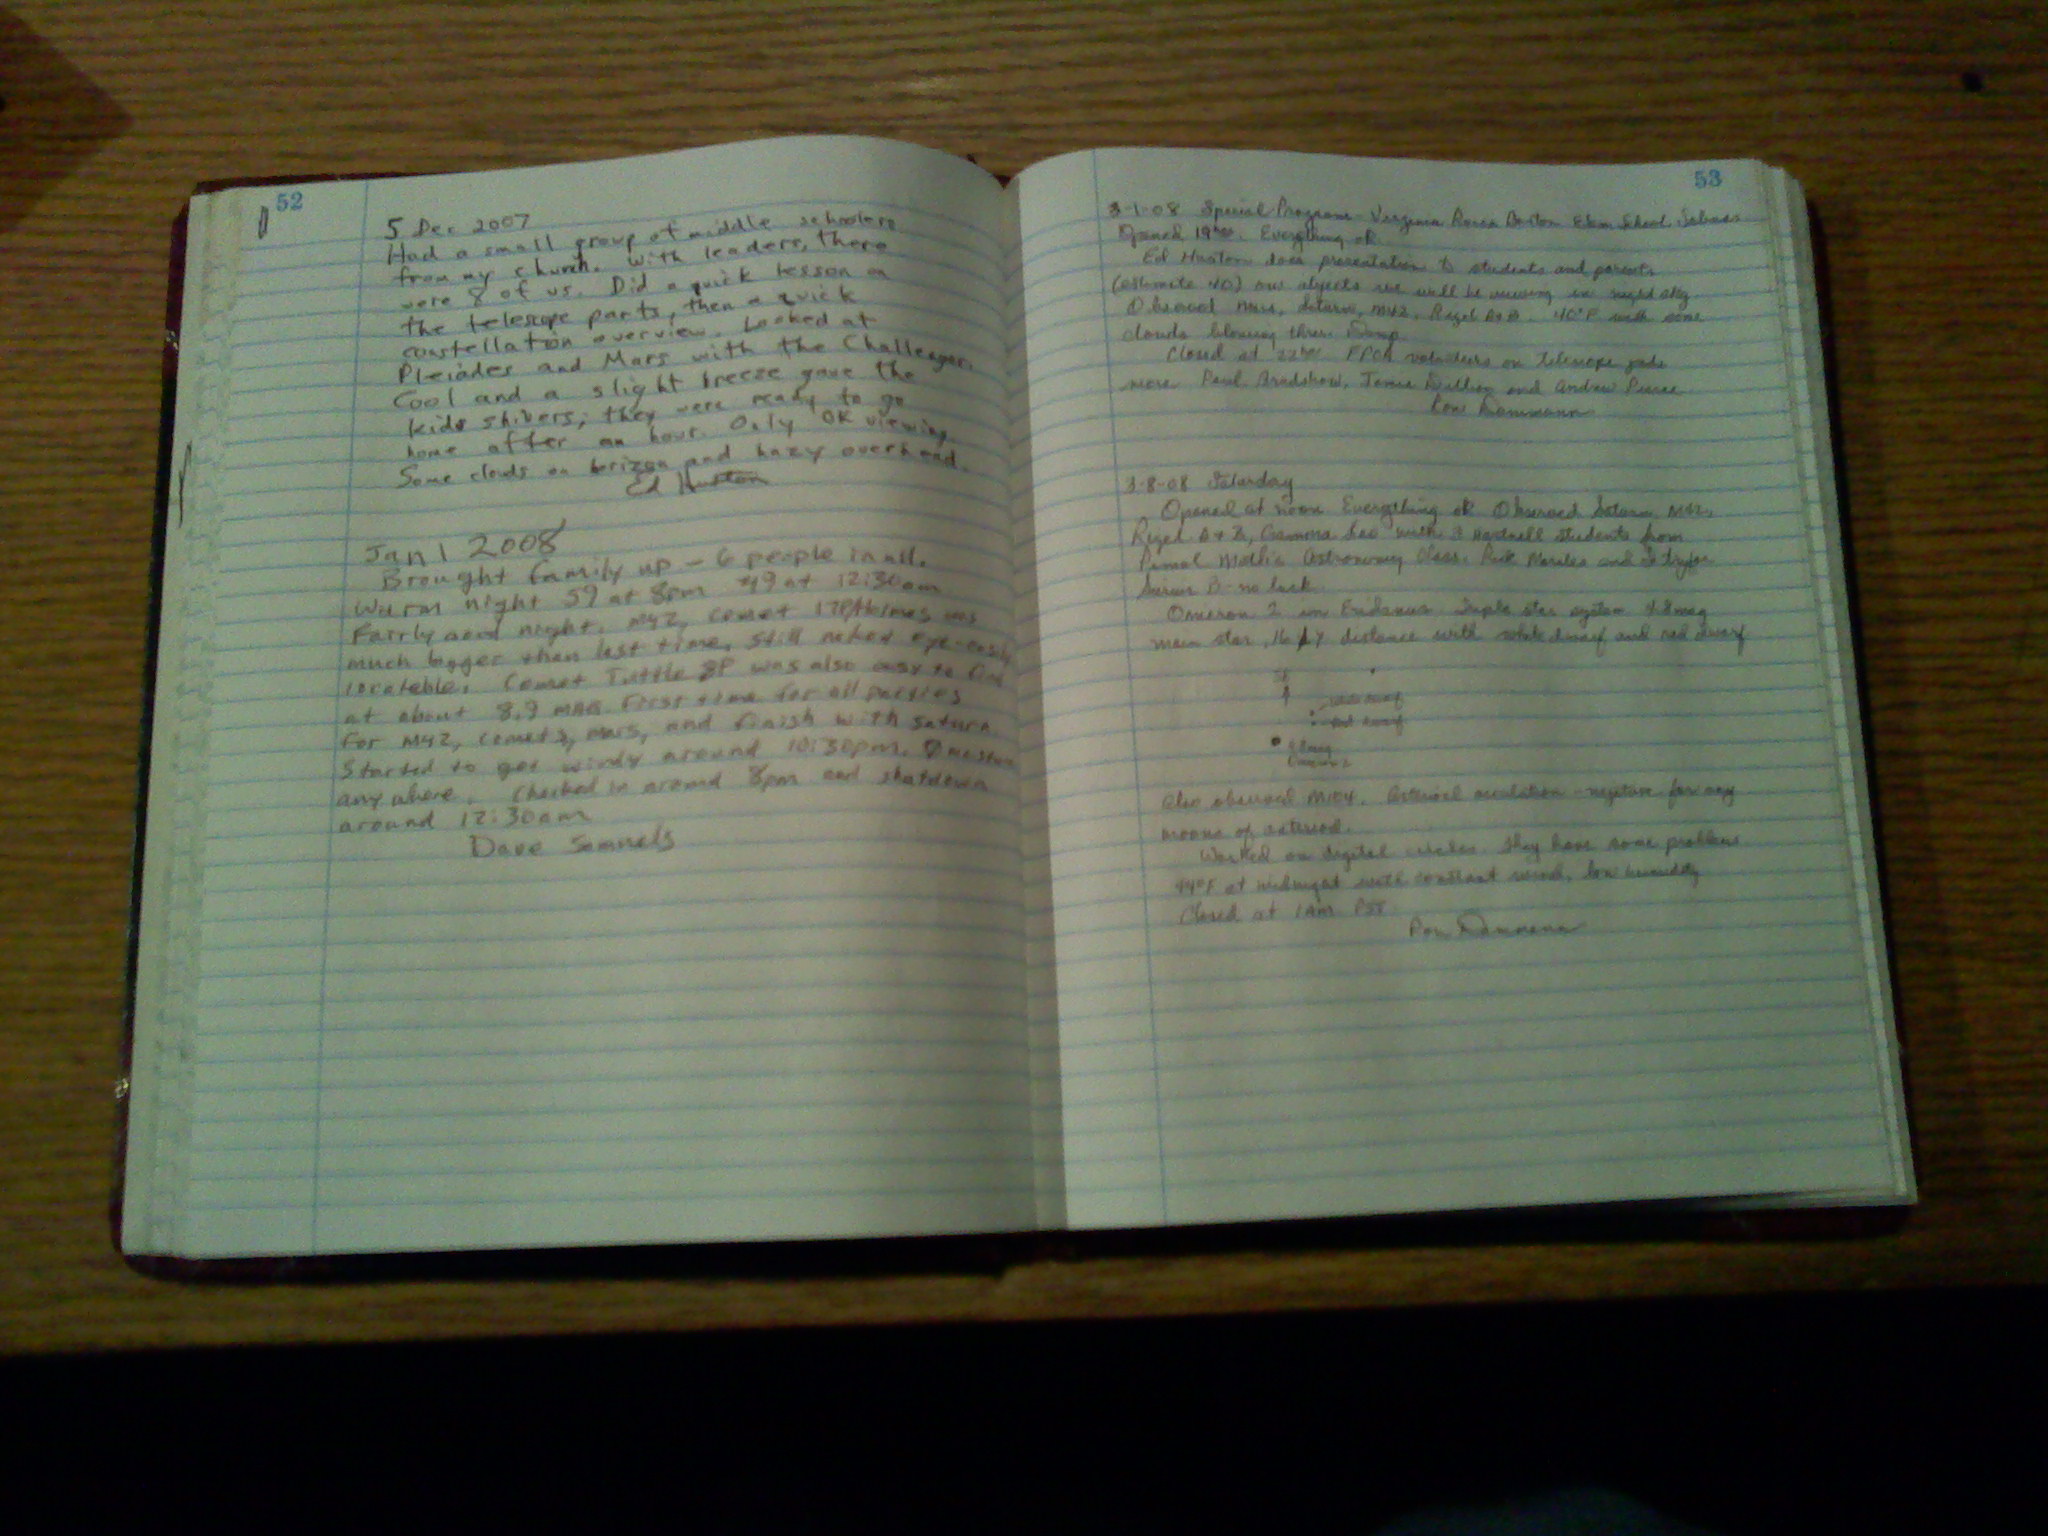 52
5 Dec 2007
Had a small group of middle schoolers
from my church. With leaders, there
were 8 of us. Did a quick lesson on
the telescope parts, then a quick
constellation overview. Looked at
Pleiades and Mars with the Challenger.
Cool and a slight breeze gave the
kids shivers; they were ready to go
home after an hour. Only OK viewing.
Some clouds on horizon and hazy overhead.
Ed Huston
Jan 1 2008
Brought family up - 6 people in all.
Warm night 59 at 8pm 49 at 12:30am
Fairly good night. M42, comet 17P/Holmes was
much bigger than last time, still naked eye-easily
locatable. Comet Tuttle 8P was also easy to find
at about 8.9 MAG First time for all parties
for M42, comets, mars, and finish with saturn.
Started to get windy around 10:30pm.
anywhere. Checked in around 8pm and shutdown
around 12:30am
Dave Samuels
53
3-1-08 Special Program - Virginia Rocca Barton Elem School, Salinas
Opened 19 Everything ok
Ed Huston does presentation to students and parents
(estimate 40) our objects we will be viewing in night sky
Observed Mars, Saturn, M42, Rigel A+B. 40°F with some
clouds blowing thru. Damp.
Closed at 22 FPOA volunteers on telescope pads
were Paul Bradshaw, Jamie and Andrew Pierce
Ron Dammann
3-8-08 Saturday
Opened at noon Everything ok Observed Saturn, M42,
Rigel A+B, Gamma Leo with 3 Hartnell students from
Pimol Moth's Astronomy Class. Rick Morales and
Sirius B - no luck
Omicron 2 in Eridanus triple star system 4.8mag
main star, distance with white dwarf and red dwarf
white dwarf
red dwarf
4.8mag
Omicron 2
Also observed M104. Asteriod occulation - negative for any
moons of asteriod.
Worked on digital circles they have some problems
44°F at midnight with constant wind, low humidity
Closed at 1AM PST.
Ron Dammann